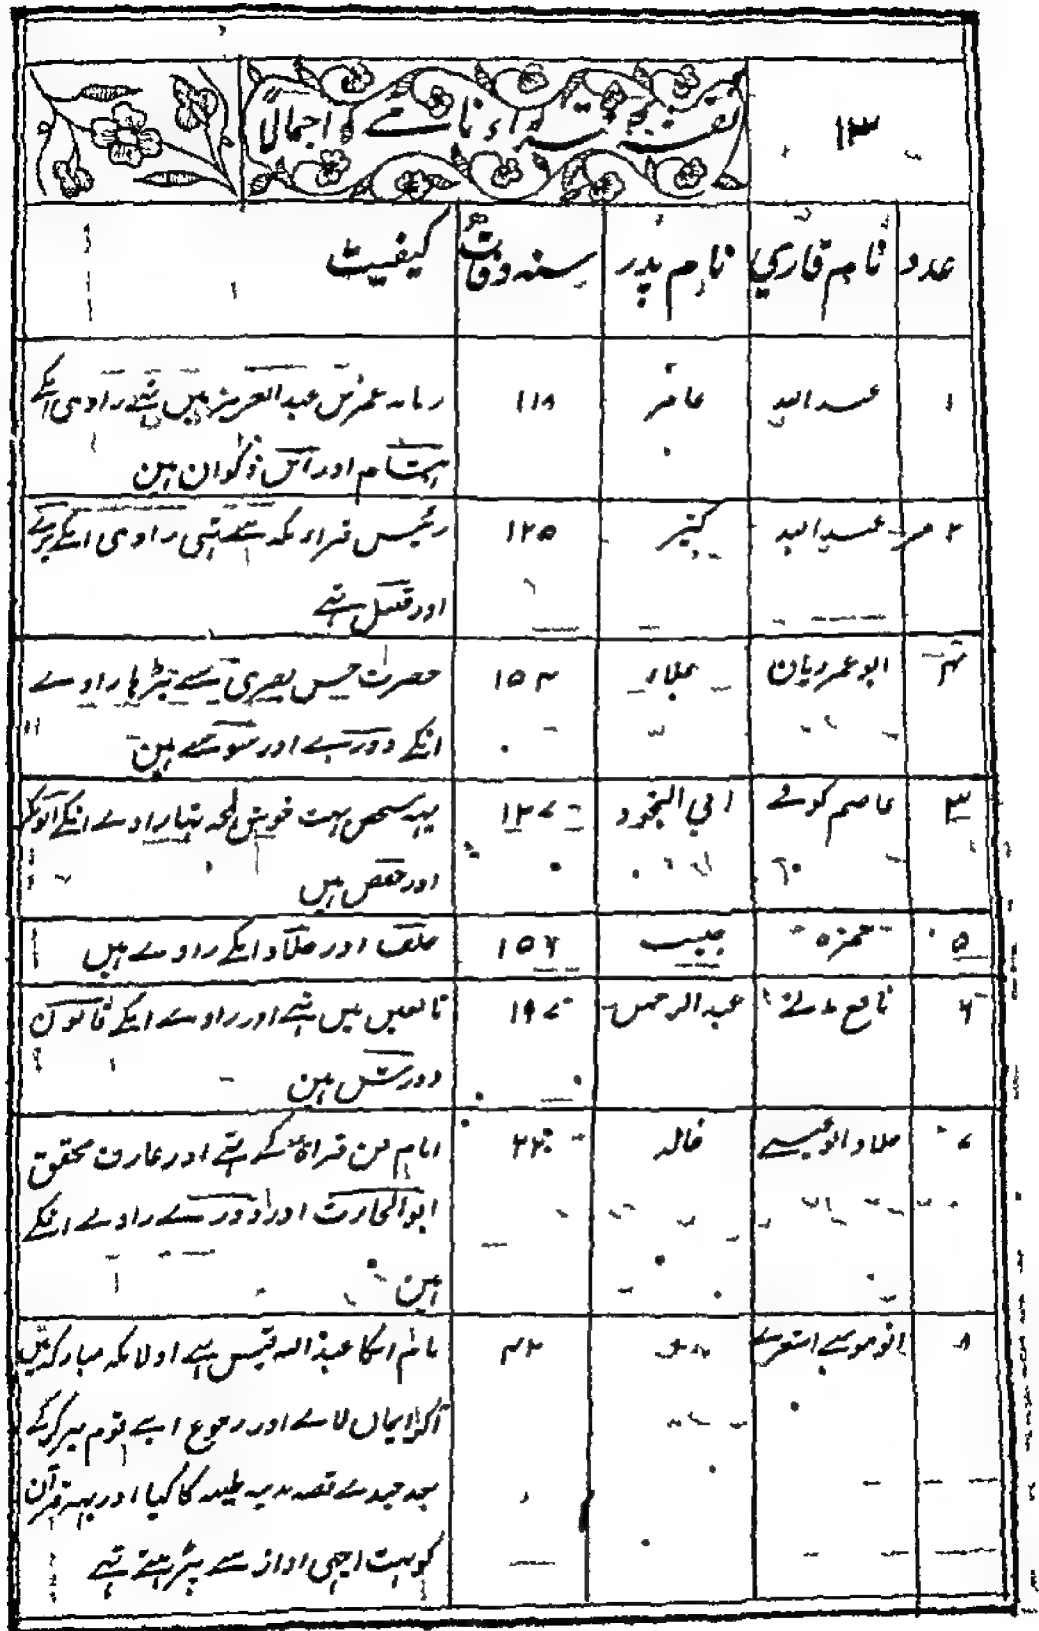 ۱۳
نقشہ قراء نامے کا اجمالاً
عدد نام قاری نام پدر سنہ وفات کیفیت
۱ عبداللہ عامر ۱۱۸ زمانہ عمر بن عبدالعزیز میں تھے راوی انکے
ہشام اور ابن ذکوان ہین
۲ عبداللہ کثیر ۱۲۵ رئیس قراء مکہ سے تہی راوی انکے بزی
اور قنبل تھے
ابو عمر ریان علاء ۱۵۴ حضرت حسن بصری سے پڑہا راوے
انکے دورے اور سوسے ہین
عاصم کوفے ابی النجود ۱۲۷ یہہ شخص بہت خوش لہجہ تہا راوے انکے ابوبکر
اور حفص ہیں
۵ حمزہ حبیب ۱۵۶ خلف اور خلاد انکے راوے ہیں
۶ نافع مدنے عبدالرحمن ۱۶۷ تابعین میں تھے اور راوے انکے قالون
و ورش ہین
۷ خالد ۲۲۰ امام فن قراۃ کے تھے اور عارف محقق
ابوالحارث اور دورے راوے انکے
ہین
۸ ابو موسے اشعرے ۴۲ نام اسکا عبداللہ قیس ہے اولا مکہ مبارکہ میں
آکر ایمان لاے اور رجوع اپنے قوم
قصد مدینہ طیبہ کا کیا اور یہہ قرآن
کو بہت اچہی اواز سے پڑہتے تہے